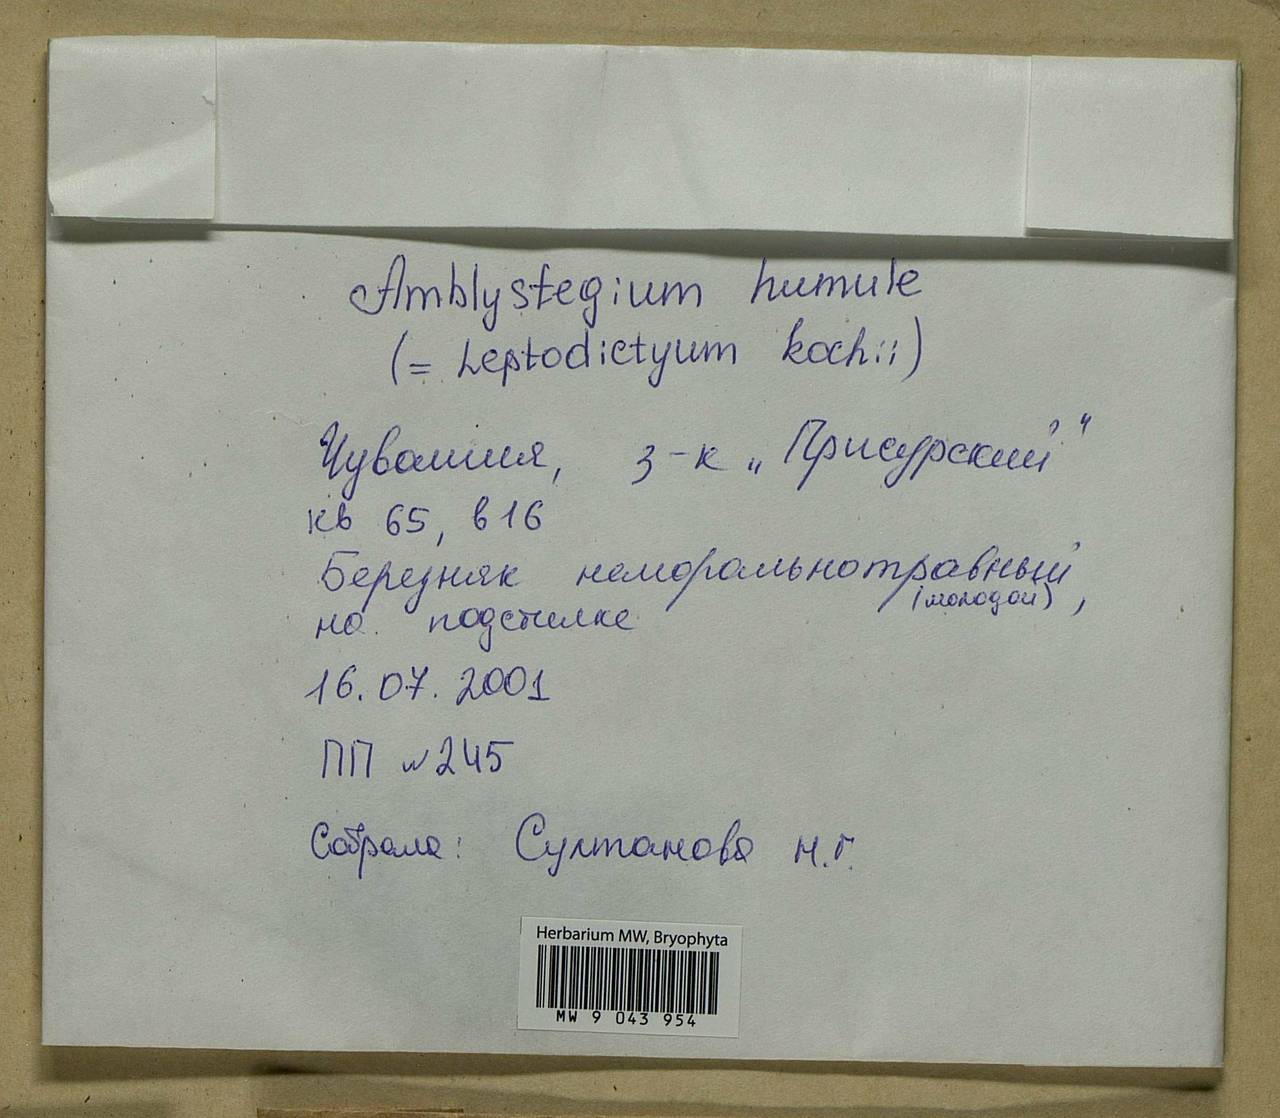 Amblystegium humule
(= Leptodictyum kochii)
Чувашия, з-к „Присурский"
кв 65, в 16
Березняк неморальнотравный
(молодой),
на подстилке
16.07.2001
ПП №245
Собрала: Султанова Н.Г.
Herbarium MW, Bryophyta
MW 9 043 954